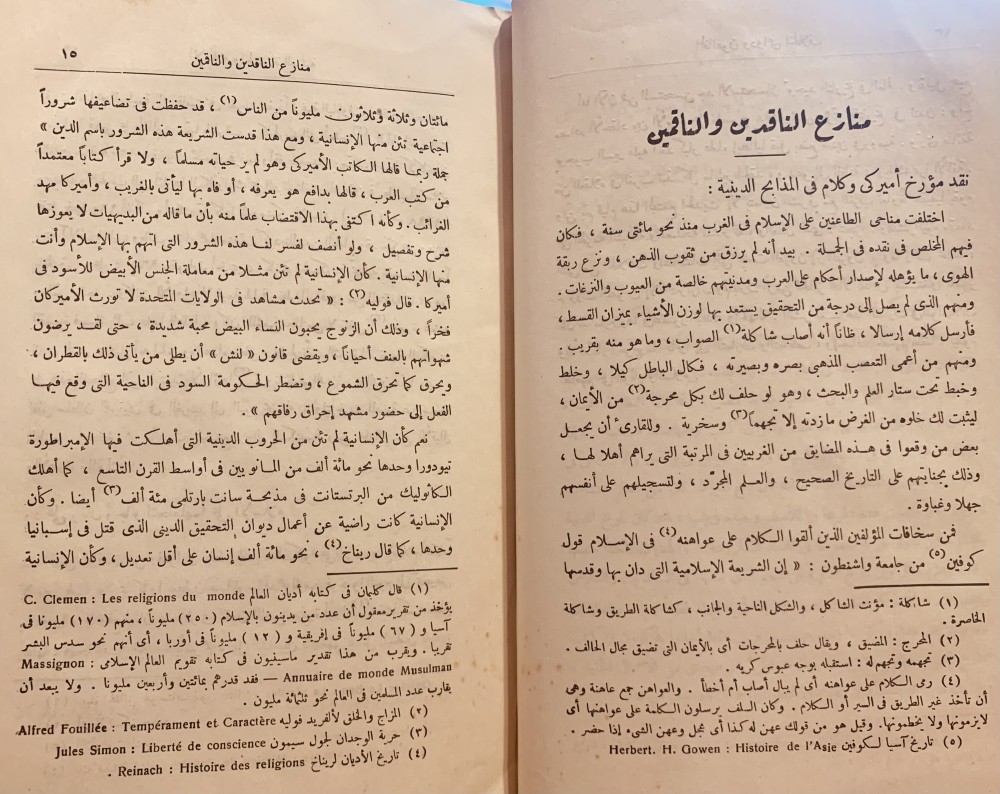 منازع الناقدين والناقمين
نقد مؤرخ أميركى وكلام فى المذابح الدينية :
اختلفت مناحى الطاعنين على الإسلام فى الغرب منذ نحو مائتى سنة ، فكان
فيهم المخلص فى نقده فى الجملة . بيد أنه لم يرزق من ثقوب الذهن ، ونزع ربقة
الهوى ، ما يؤهله لإصدار أحكام على العرب ومدنيتهم خالصة من العيوب والنزغات .
ومنهم الذى لم يصل إلى درجة من التحقيق يستعد بها لوزن الأشياء بميزان القسط ،
فأرسل كلامه إرسالا ، ظانًا أنه أصاب شاكلة(١) الصواب ، وما هو منه بقريب .
ومنهم من أعمى التعصب المذهبى بصره وبصيرته ، فكال الباطل كيلا ، وخلط
وخبط تحت ستار العلم والبحث ، وهو لو حلف لك بكل محرجة(٢) من الأيمان ،
ليثبت لك خلوه من الغرض ما زدته إلا تجهماً(٣) وسخرية . وللقارىء أن يجعل
بعض من وقعوا فى هذه المضايق من الغربيين فى المرتبة التى يراهم أهلا لها ،
وذلك بجنايتهم على التاريخ الصحيح ، والعلم المجرّد ، ولتسجيلهم على أنفسهم
جهلا وغباوة .
فمن سخافات المؤلفين الذين ألقوا الكلام على عواهنه(٤) فى الإسلام قول
كوفين(٥) من جامعة واشنطون : « إن الشريعة الإسلامية التى دان بها وقدسها
(١) شاكلة : مؤنث الشاكل ، والشكل الناحية والجانب ، كشاكلة الطريق وشاكلة
الخاصرة .
(٢) المحرج : المضيق ، ويقال حلف بالمحرجات أى بالأيمان التى تضيق مجال الحالف .
(٣) تجهمه وتجهم له : استقبله بوجه عبوس كريه .
(٤) رمى الكلام على عواهنه أى لم يبال أصاب أم أخطأ . والعواهن جمع عاهنة وهى
أن تأخذ غير الطريق فى السير أو الكلام . وكان السلف يرسلون الكلمة على عواهنها أى
لايزمونها ولا يخطمونها. وقيل هو من قولك عهن له كذا أى عجل وعهن الشىء إذا حضر .
(٥) تاريخ آسيا لـكوفين Herbert. H. Gowen : Histoire de l'Asie
منازع الناقدين والناقمين ١٥
مائتان وثلاثة وثلاثون مليوناً من الناس(١) ، قد حفظت فى تضاعيفها شروراً
اجتماعية تئن منها الإنسانية ، ومع هذا قدست الشريعة هذه الشرور باسم الدين »
جملة ربما قالها الكاتب الأميركى وهو لم ير حياته مسلماً ، ولا قرأ كتاباً معتمداً
من كتب العرب ، قالها بدافع هو يعرفه ، أو فاه بها ليأتى بالغريب ، وأميركا مهد
الغرائب . وكأنه اكتفى بهذا الاقتضاب علماً منه بأن ما قاله من البديهيات لا يعوزها
شرح وتفصيل ، ولو أنصف لفسر لنا هذه الشرور التى اتهم بها الإسلام وأنت
منها الإنسانية . كأن الإنسانية لم تئن مثلا من معاملة الجنس الأبيض للأسود فى
أميركا . قال فوليه(٢) : « تحدث مشاهد فى الولايات المتحدة لا تورث الأميركان
فخراً ، وذلك أن الزنوج يحبون النساء البيض محبة شديدة ، حتى لقد يرضون
شهواتهم بالعنف أحياناً ، ويقضى قانون « لنش » أن يطلى من يأتى ذلك بالقطران ،
ويحرق كما تحرق الشموع ، وتضطر الحكومة السود فى الناحية التى وقع فيها
الفعل إلى حضور مشهد إحراق رفاقهم » .
نعم كأن الإنسانية لم تئن من الحروب الدينية التى أهلكت فيها الإمبراطورة
تيودورا وحدها نحو مائة ألف من المانويين فى أواسط القرن التاسع ، كما أهلك
الكاثوليك من البرتستانت فى مذبحة سانت بارتلمى مئة ألف(٣) أيضا . وكأن
الإنسانية كانت راضية عن أعمال ديوان التحقيق الدينى الذى قتل فى إسبانيا
وحدها ، كما قال ريناخ(٤) ، نحو مائة ألف إنسان على أقل تعديل ، وكأن الإنسانية
(١) قال كليمان فى كتابه أديان العالم C. Clemen : Les religions du monde
يؤخذ من تقرير معقول أن عدد من يدينون بالإسلام (٢٥٠) مليوناً ، منهم (١٧٠) مليونا فى
آسيا و (٦٧) مليوناً فى إفريقية و (١٢) مليوناً فى أوربا ، أى أنهم نحو سدس البشر
تقريبا . ويقرب من هذا تقدير ماسينيون فى كتابه تقويم العالم الإسلامى : Massignon
Annuaire de monde Musulman — فقد قدرهم بمائتين وأربعين مليونا . ولا يبعد أن
يقارب عدد المسلمين فى العالم نحو ثلثمائة مليون .
(٢) المزاج والخلق لألفريد فوليه Alfred Fouillée : Tempérament et Caractère
(٣) حرية الوجدان لجول سيمون Jules Simon : Liberté de conscience
(٤) تاريخ الأديان لريناخ Reinach : Histoire des religions .